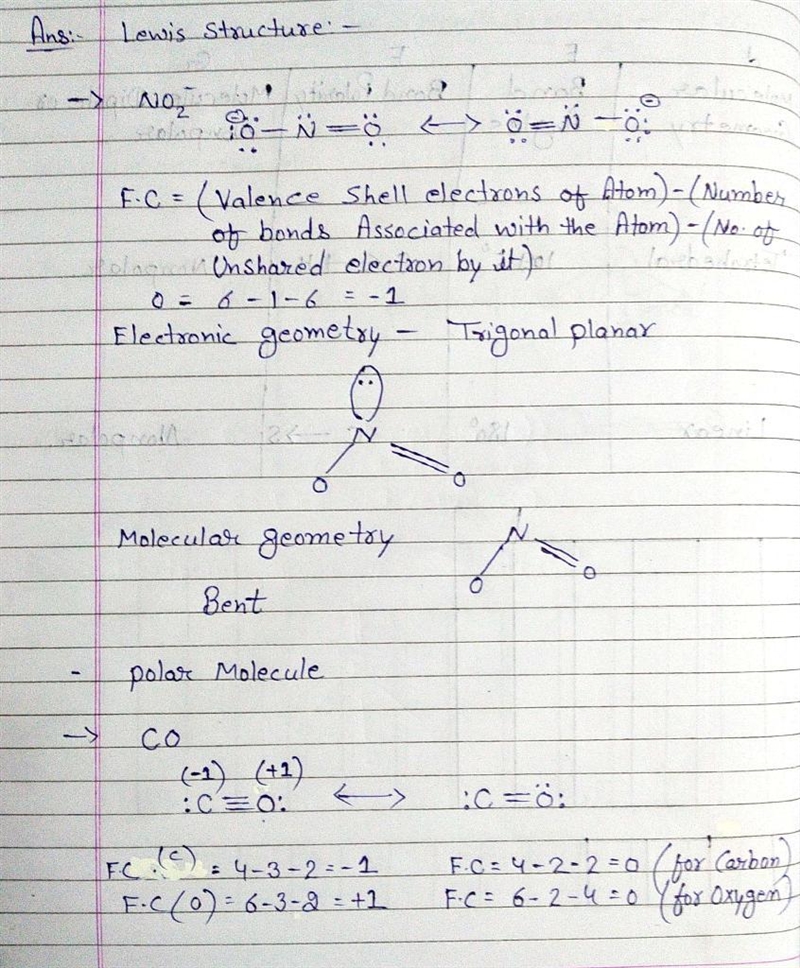 Ans:- Lewis Structure:-
→ NO₂⁻ ⊖:Ö̤ — N̈ = Ö̤ ⟷ Ö̤ = N̈ — Ö̤:⊖
F.C = (Valence Shell electrons of Atom)-(Number
of bonds Associated with the Atom)-(No. of
Unshared electron by it)
O = 6-1-6 = -1
Electronic geometry - Trigonal planar
:
N
O O
Molecular geometry
N
O O
Bent
- polar Molecule
→ CO
(-1) (+1)
:C≡O: ⟷ :C=Ö:
F.C.(C) = 4-3-2=-1 F.C=4-2-2=0 (for Carbon)
F.C(O)=6-3-2=+1 F.C= 6-2-4=0 (for Oxygen)